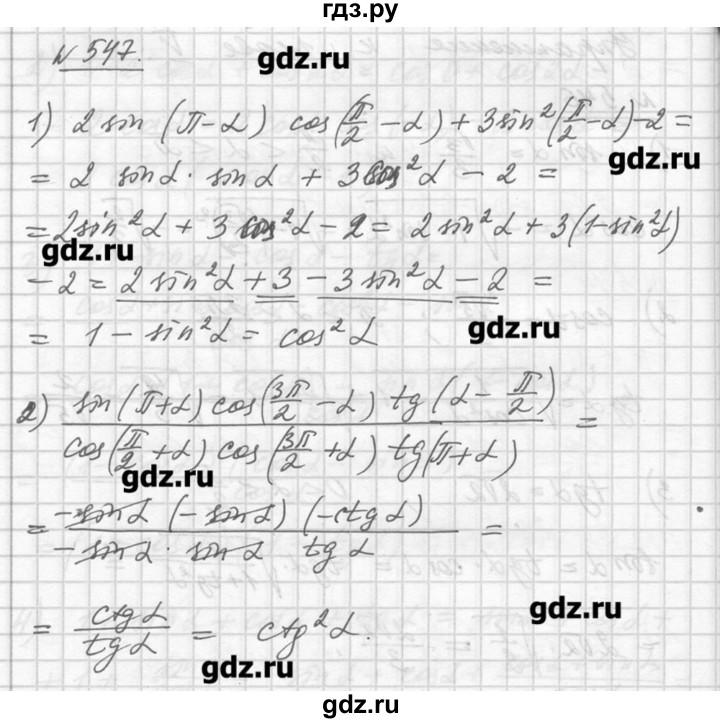 гдз.ру
N 547.
gdz.ru
1) 2 sin (π-α) cos(π/2 - α) + 3sin²(π/2 - α) - 2 =
gdz.ru
= 2 sinα · sinα + 3cos²α - 2 =
= 2sin²α + 3 cos²α - 2 = 2sin²α + 3(1-sin²α)
gdz.ru
- 2 = 2sin²α + 3 - 3sin²α - 2 =
= 1 - sin²α = cos²α
gdz.ru
2) sin(π+α) cos(3π/2 - α) tg(α - π/2) =
cos(π/2 + α) cos(3π/2 + α) tg(π+α)
gdz.ru
= -sinα (-sinα) (-ctgα) =
-sinα · sinα tgα
gdz.ru
= ctgα / tgα = ctg²α.
gdz.ru
gdz.ru